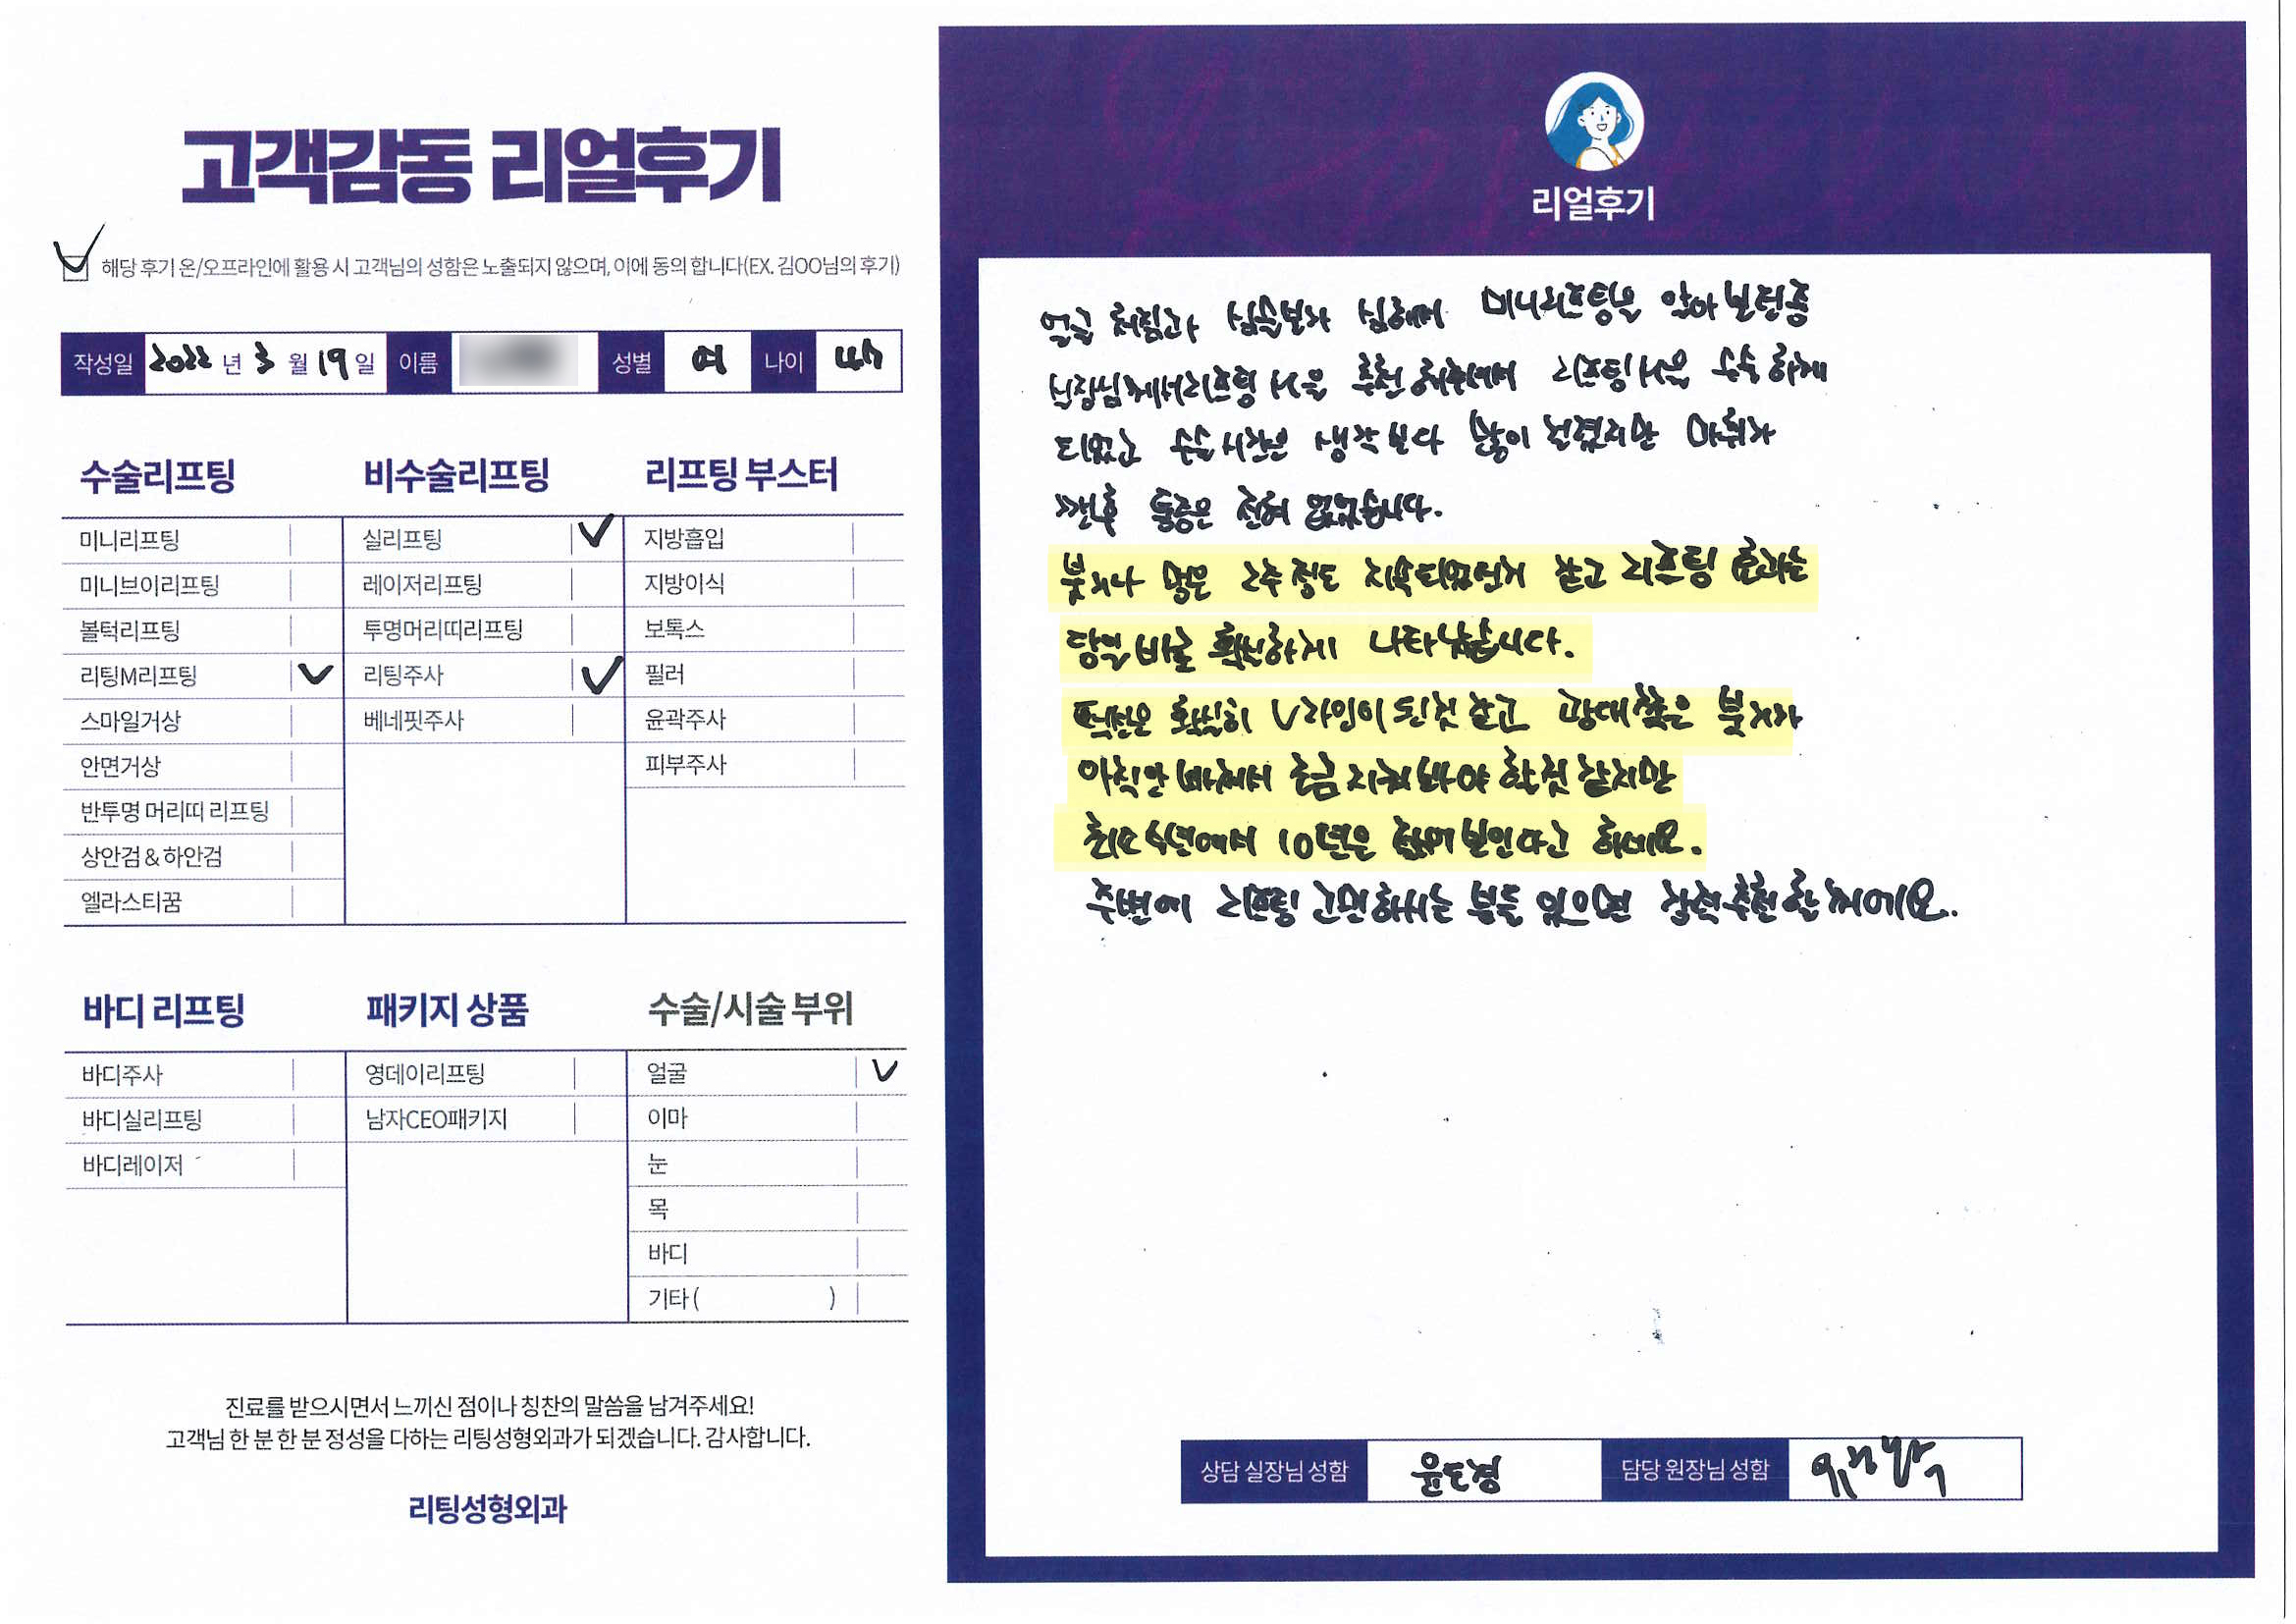 고객감동 리얼후기
해당 후기 온/오프라인에 활용 시 고객님의 성함은 노출되지 않으며, 이에 동의 합니다(EX. 김OO님의 후기)
작성일 2022 년 3 월 19 일 이름 성별 여 나이 47
수술리프팅
미니리프팅
미니브이리프팅
볼턱리프팅
리팅M리프팅
스마일거상
안면거상
반투명 머리띠 리프팅
상안검 & 하안검
엘라스티꿈
비수술리프팅
실리프팅
레이저리프팅
투명머리띠리프팅
리팅주사
베네핏주사
리프팅 부스터
지방흡입
지방이식
보톡스
필러
윤곽주사
피부주사
바디 리프팅
바디주사
바디실리프팅
바디레이저
패키지 상품
영데이리프팅
남자CEO패키지
수술/시술 부위
얼굴
이마
눈
목
바디
기타 ( )
진료를 받으시면서 느끼신 점이나 칭찬의 말씀을 남겨주세요!
고객님 한 분 한 분 정성을 다하는 리팅성형외과가 되겠습니다. 감사합니다.
리팅성형외과
리얼후기
얼굴 처짐과 심술보가 심해서 미니리프팅을 알아 보던중
원장님께서 리프팅 M을 추천 해주셔서 리프팅M을 수술 하게
되었고 수술시간은 생각보다 많이 걸렸지만 마취가
깬후 통증은 전혀 없었습니다.
붓기나 멍은 2주 정도 지속되었던거 같고 리프팅 효과는
당일 바로 확실하게 나타났습니다.
턱선은 확실히 V라인이 된것 같고 광대쪽은 붓기가
아직 안 빠져서 조금 지켜봐야 할것 같지만
최소 5년에서 10년은 어려 보인다고 하네요.
주변에 리프팅 고민하시는 분들 있으면 강력추천 할께에요.
상담 실장님 성함 윤도경 담당 원장님 성함